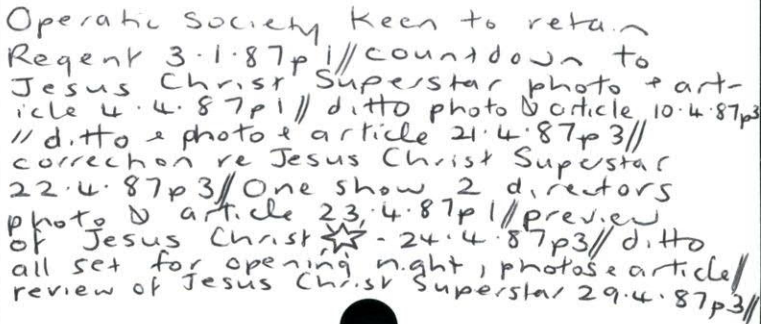 Operatic Society keen to retain
Regent 3.1.87p1//countdown to
Jesus Christ Superstar photo & art-
icle 4.4.87p1// ditto photo & article 10.4.87p3
// ditto & photo & article 21.4.87p3//
correction re Jesus Christ Superstar
22.4.87p3//One show 2 directors
photo & article 23.4.87p1//preview
of Jesus Christ ☆ - 24.4.87p3// ditto
all set for opening night, photos & article//
review of Jesus Christ Superstar 29.4.87p3//